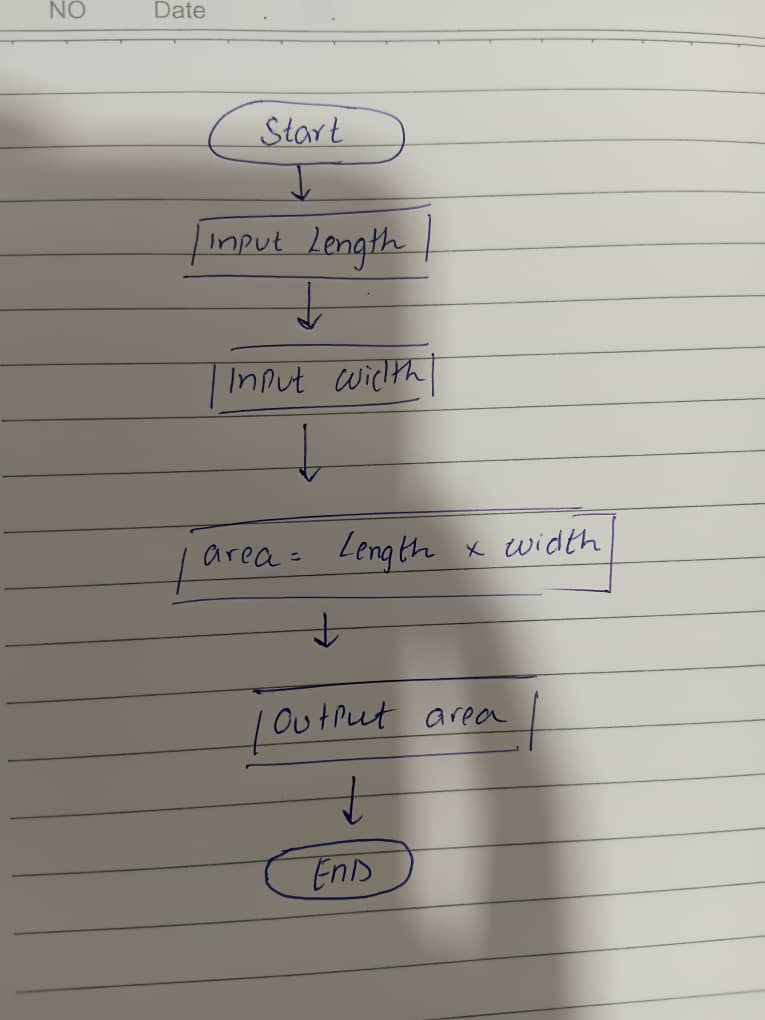 NO Date
Start
Input Length
Input width
area = Length x width
Output area
End